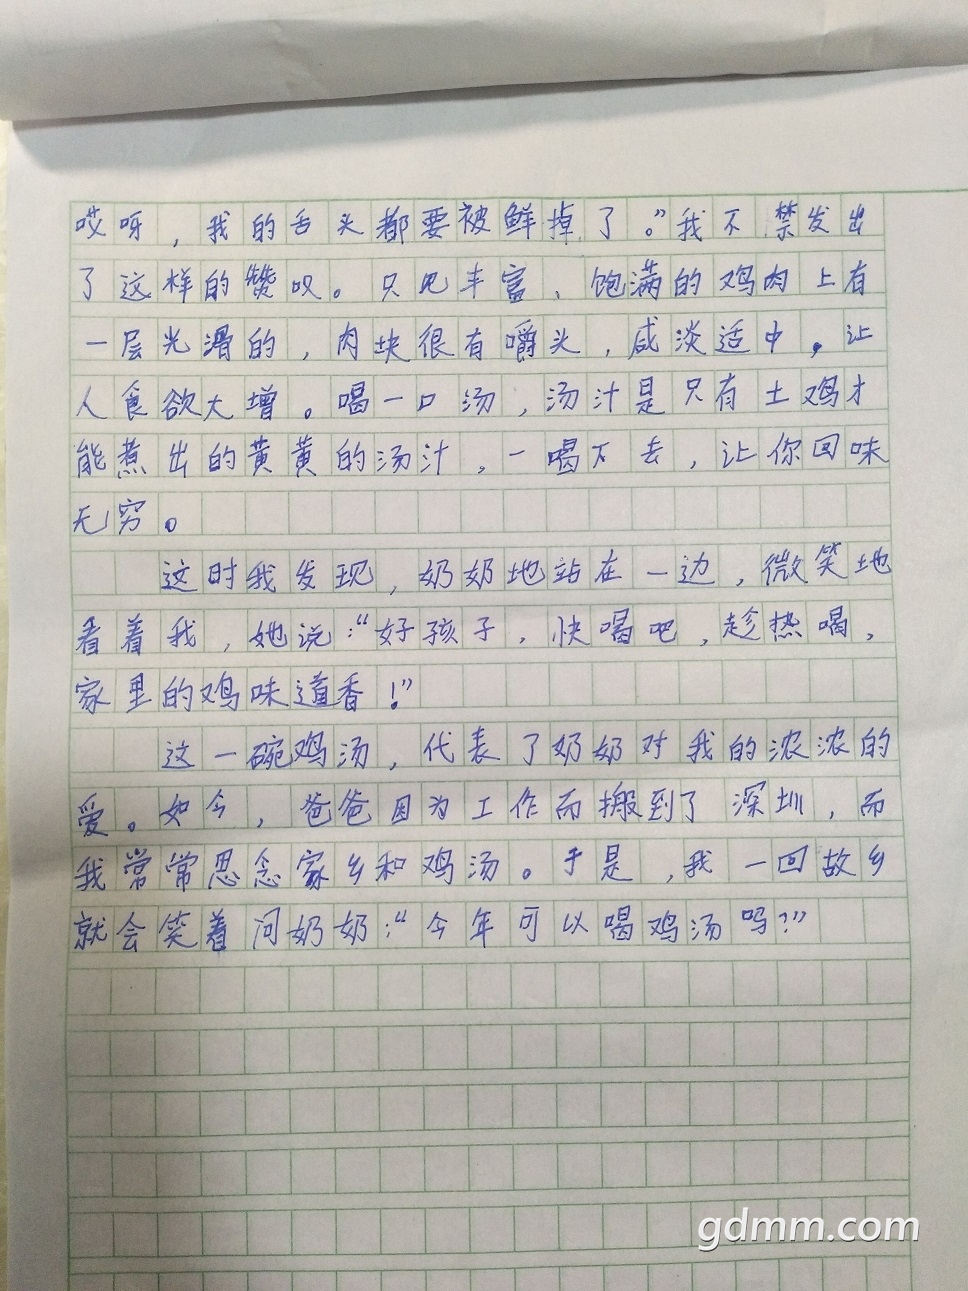 哎呀，我的舌头都要被鲜掉了。”我不禁发出
了这样的赞叹。只见丰富、饱满的鸡肉上有
一层光滑的，肉块很有嚼头，咸淡适中，让
人食欲大增。喝一口汤，汤汁是只有土鸡才
能煮出的黄黄的汤汁，一喝下去，让你回味
无穷。
这时我发现，奶奶地站在一边，微笑地
看着我，她说：“好孩子，快喝吧，趁热喝，
家里的鸡味道香！”
这一碗鸡汤，代表了奶奶对我的浓浓的
爱。如今，爸爸因为工作而搬到了深圳，而
我常常思念家乡和鸡汤。于是，我一回故乡
就会笑着问奶奶：“今年可以喝鸡汤吗？”
gdmm.com